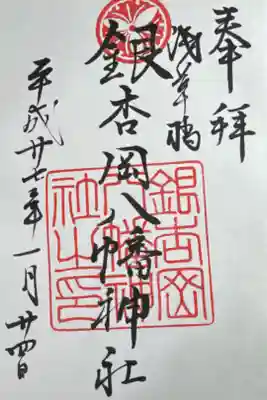 奉拝
浅草橋
銀杏岡八幡神社
平成廿七年一月廿四日
銀杏岡
八幡神
社之印